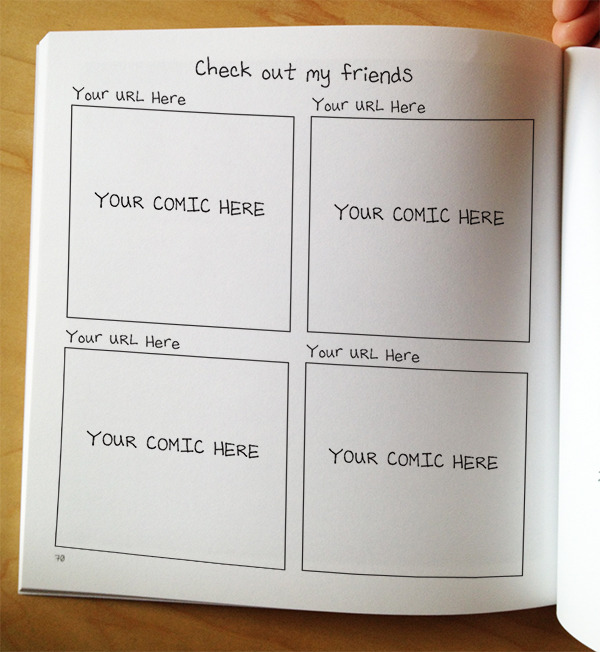 Check out my friends
Your URL Here
Your URL Here
YOUR COMIC HERE
YOUR COMIC HERE
Your URL Here
Your URL Here
YOUR COMIC HERE
YOUR COMIC HERE
70